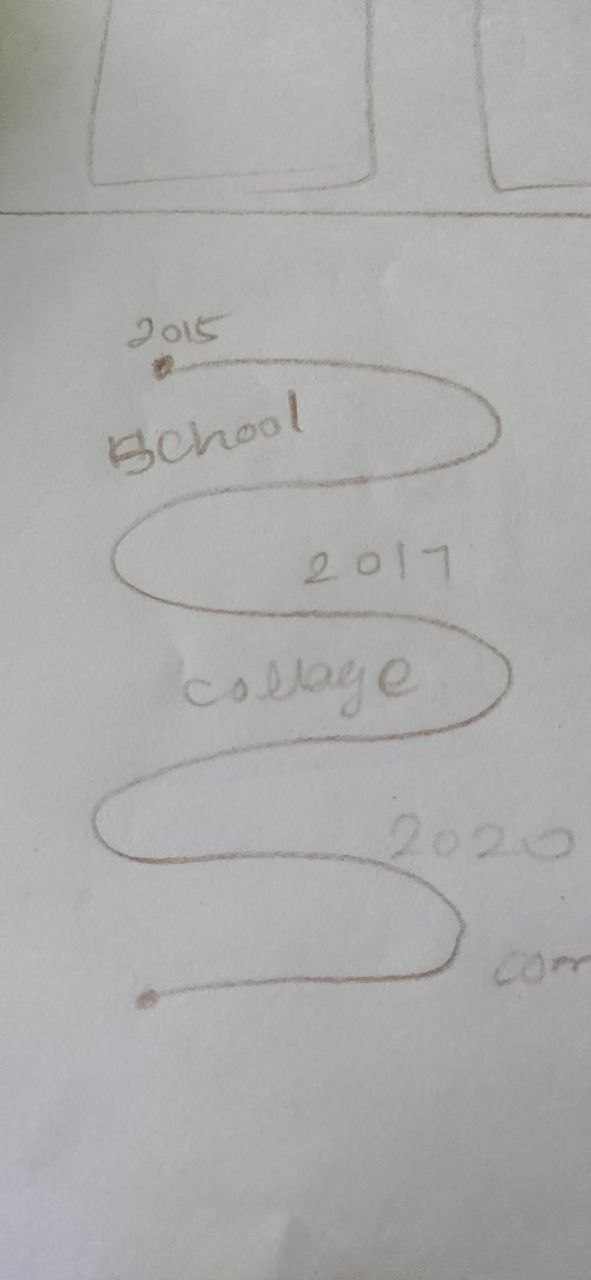 2015
School
2017
collage
2020